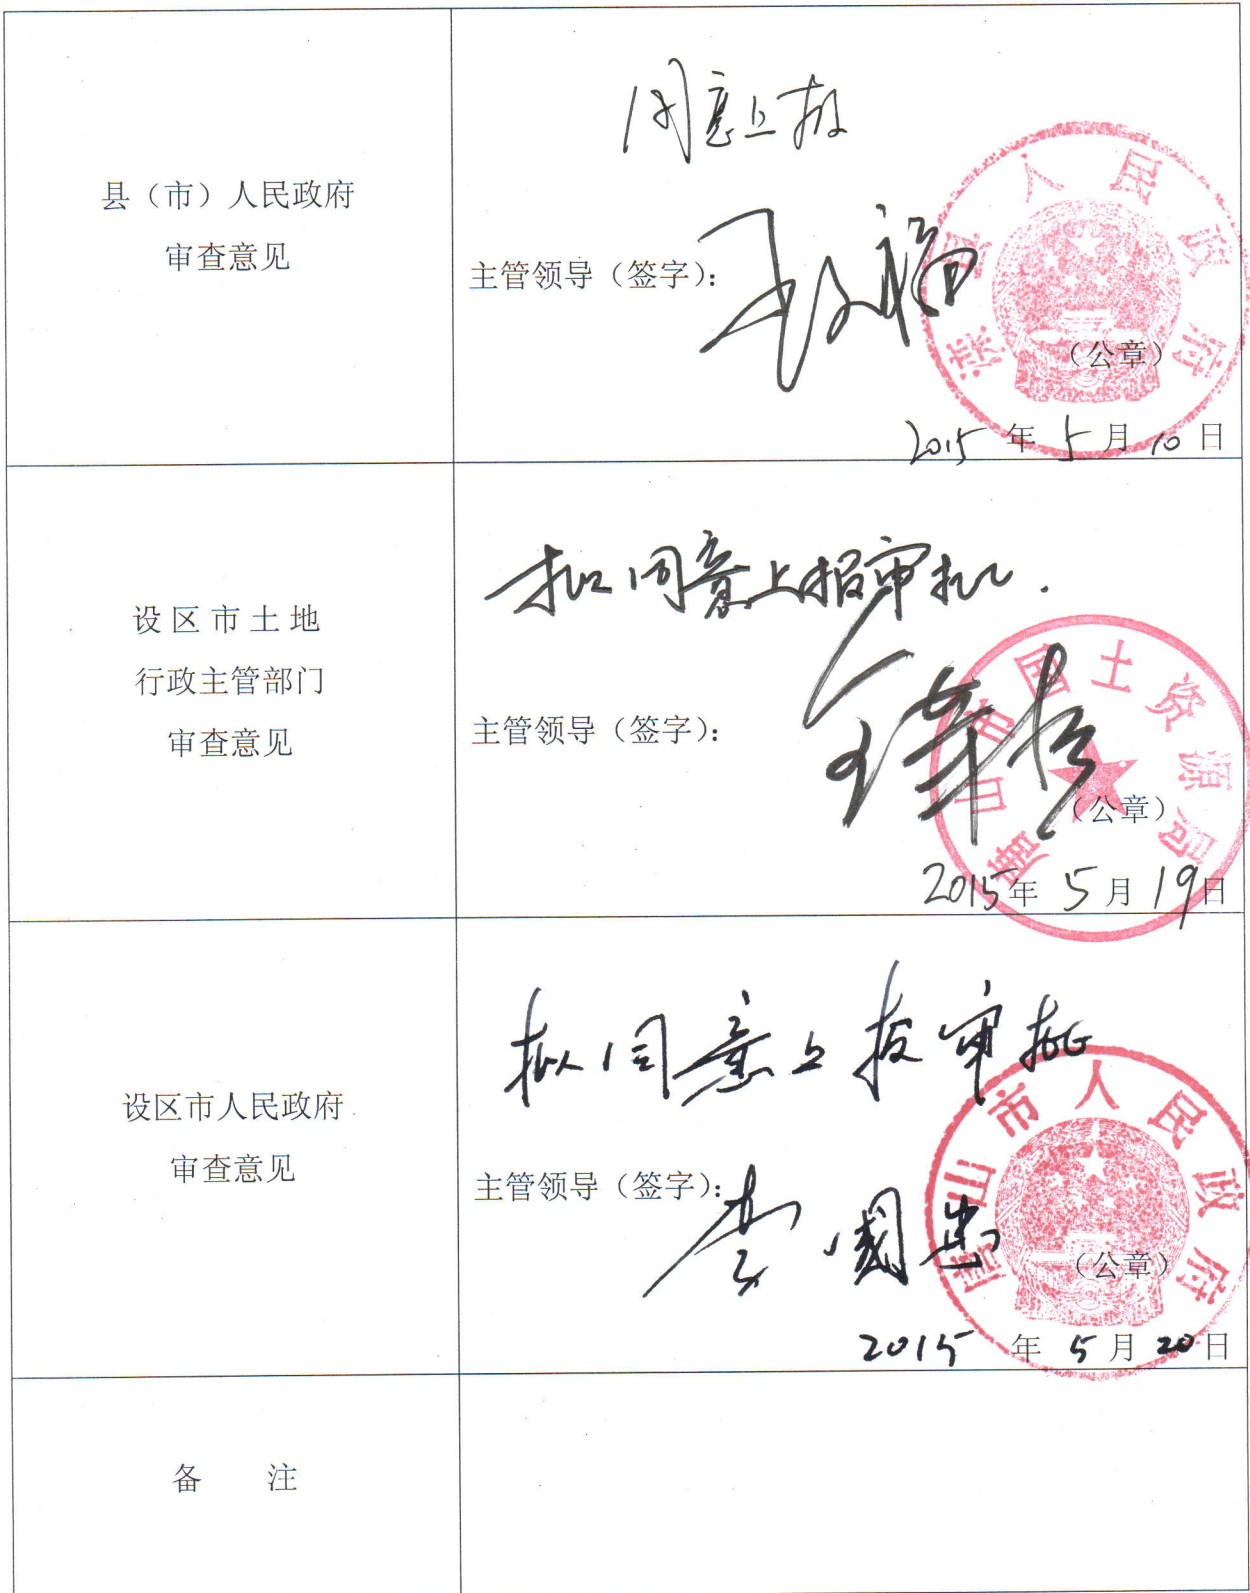 县（市）人民政府
审查意见
同意上报
主管领导（签字）：
滦县人民政府
（公章）
2015年5月10日
设区市土地
行政主管部门
审查意见
拟同意上报审批.
主管领导（签字）：
唐山市国土资源局
（公章）
2015年5月19日
设区市人民政府
审查意见
拟同意上报审批
主管领导（签字）：
李国忠
唐山市人民政府
（公章）
2015年5月20日
备 注